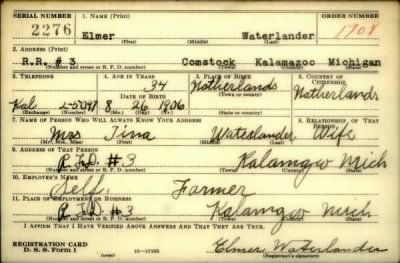 SERIAL NUMBER 1. NAME (Print) ORDER NUMBER
2276 Elmer Waterlander 1708
(First) (Middle) (Last)
2. ADDRESS (Print)
R.R. # 3 Comstock Kalamazoo Michigan
(Number and street or R. F. D. number) (Town) (County) (State)
3. TELEPHONE 4. AGE IN YEARS 5. PLACE OF BIRTH 6. COUNTRY OF CITIZENSHIP
34 Netherlands
DATE OF BIRTH (Town or county) Netherlands
Kal 8 26 1906
(Exchange) (Number) (Mo.) (Day) (Yr.) (State or country)
7. NAME OF PERSON WHO WILL ALWAYS KNOW YOUR ADDRESS 8. RELATIONSHIP OF THAT PERSON
Mrs Tina Waterlander Wife
(Mr., Mrs., Miss) (First) (Middle) (Last)
9. ADDRESS OF THAT PERSON
R.F.D. #3 Kalamazoo Mich
(Number and street or R. F. D. number) (Town) (County) (State)
10. EMPLOYER'S NAME
Self. Farmer
11. PLACE OF EMPLOYMENT OR BUSINESS
R.F.D. #3 Kalamazoo Mich
(Number and street or R. F. D. number) (Town) (County) (State)
I AFFIRM THAT I HAVE VERIFIED ABOVE ANSWERS AND THAT THEY ARE TRUE.
REGISTRATION CARD
D. S. S. Form 1 (over) Elmer Waterlander
(Registrant's signature)